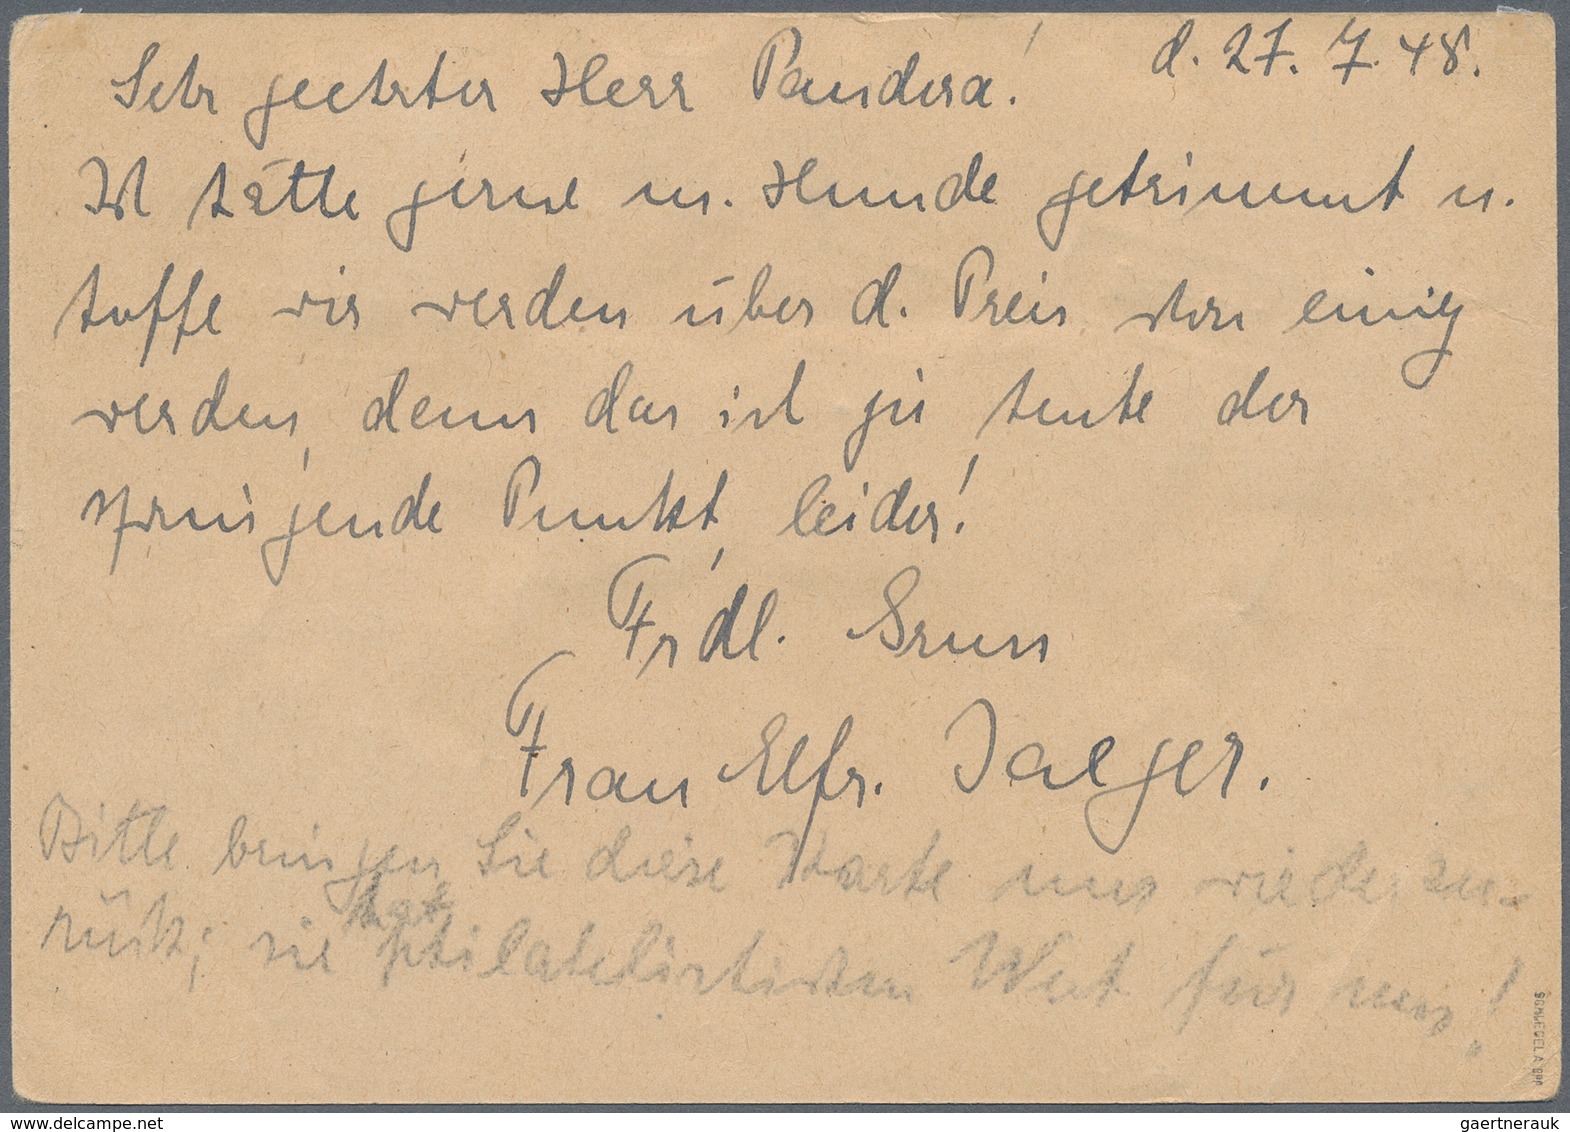 d. 27. 7. 48.
Sehr geehrter Herr Pandera!
Ich hätte gerne m. Hunde getrimmt u.
hoffe wir werden über d. Preis schon einig
werden, denn das ist ja heute der
springende Punkt, leider!
Frdl. Gruss
Frau Elfr. Jaeger.
Bitte bringen Sie diese Karte uns wieder zu-
rück; sie hat philatelistischen Wert für uns!
SCHLEGEL A BPP
www.delcampe.net
gaertnerauk